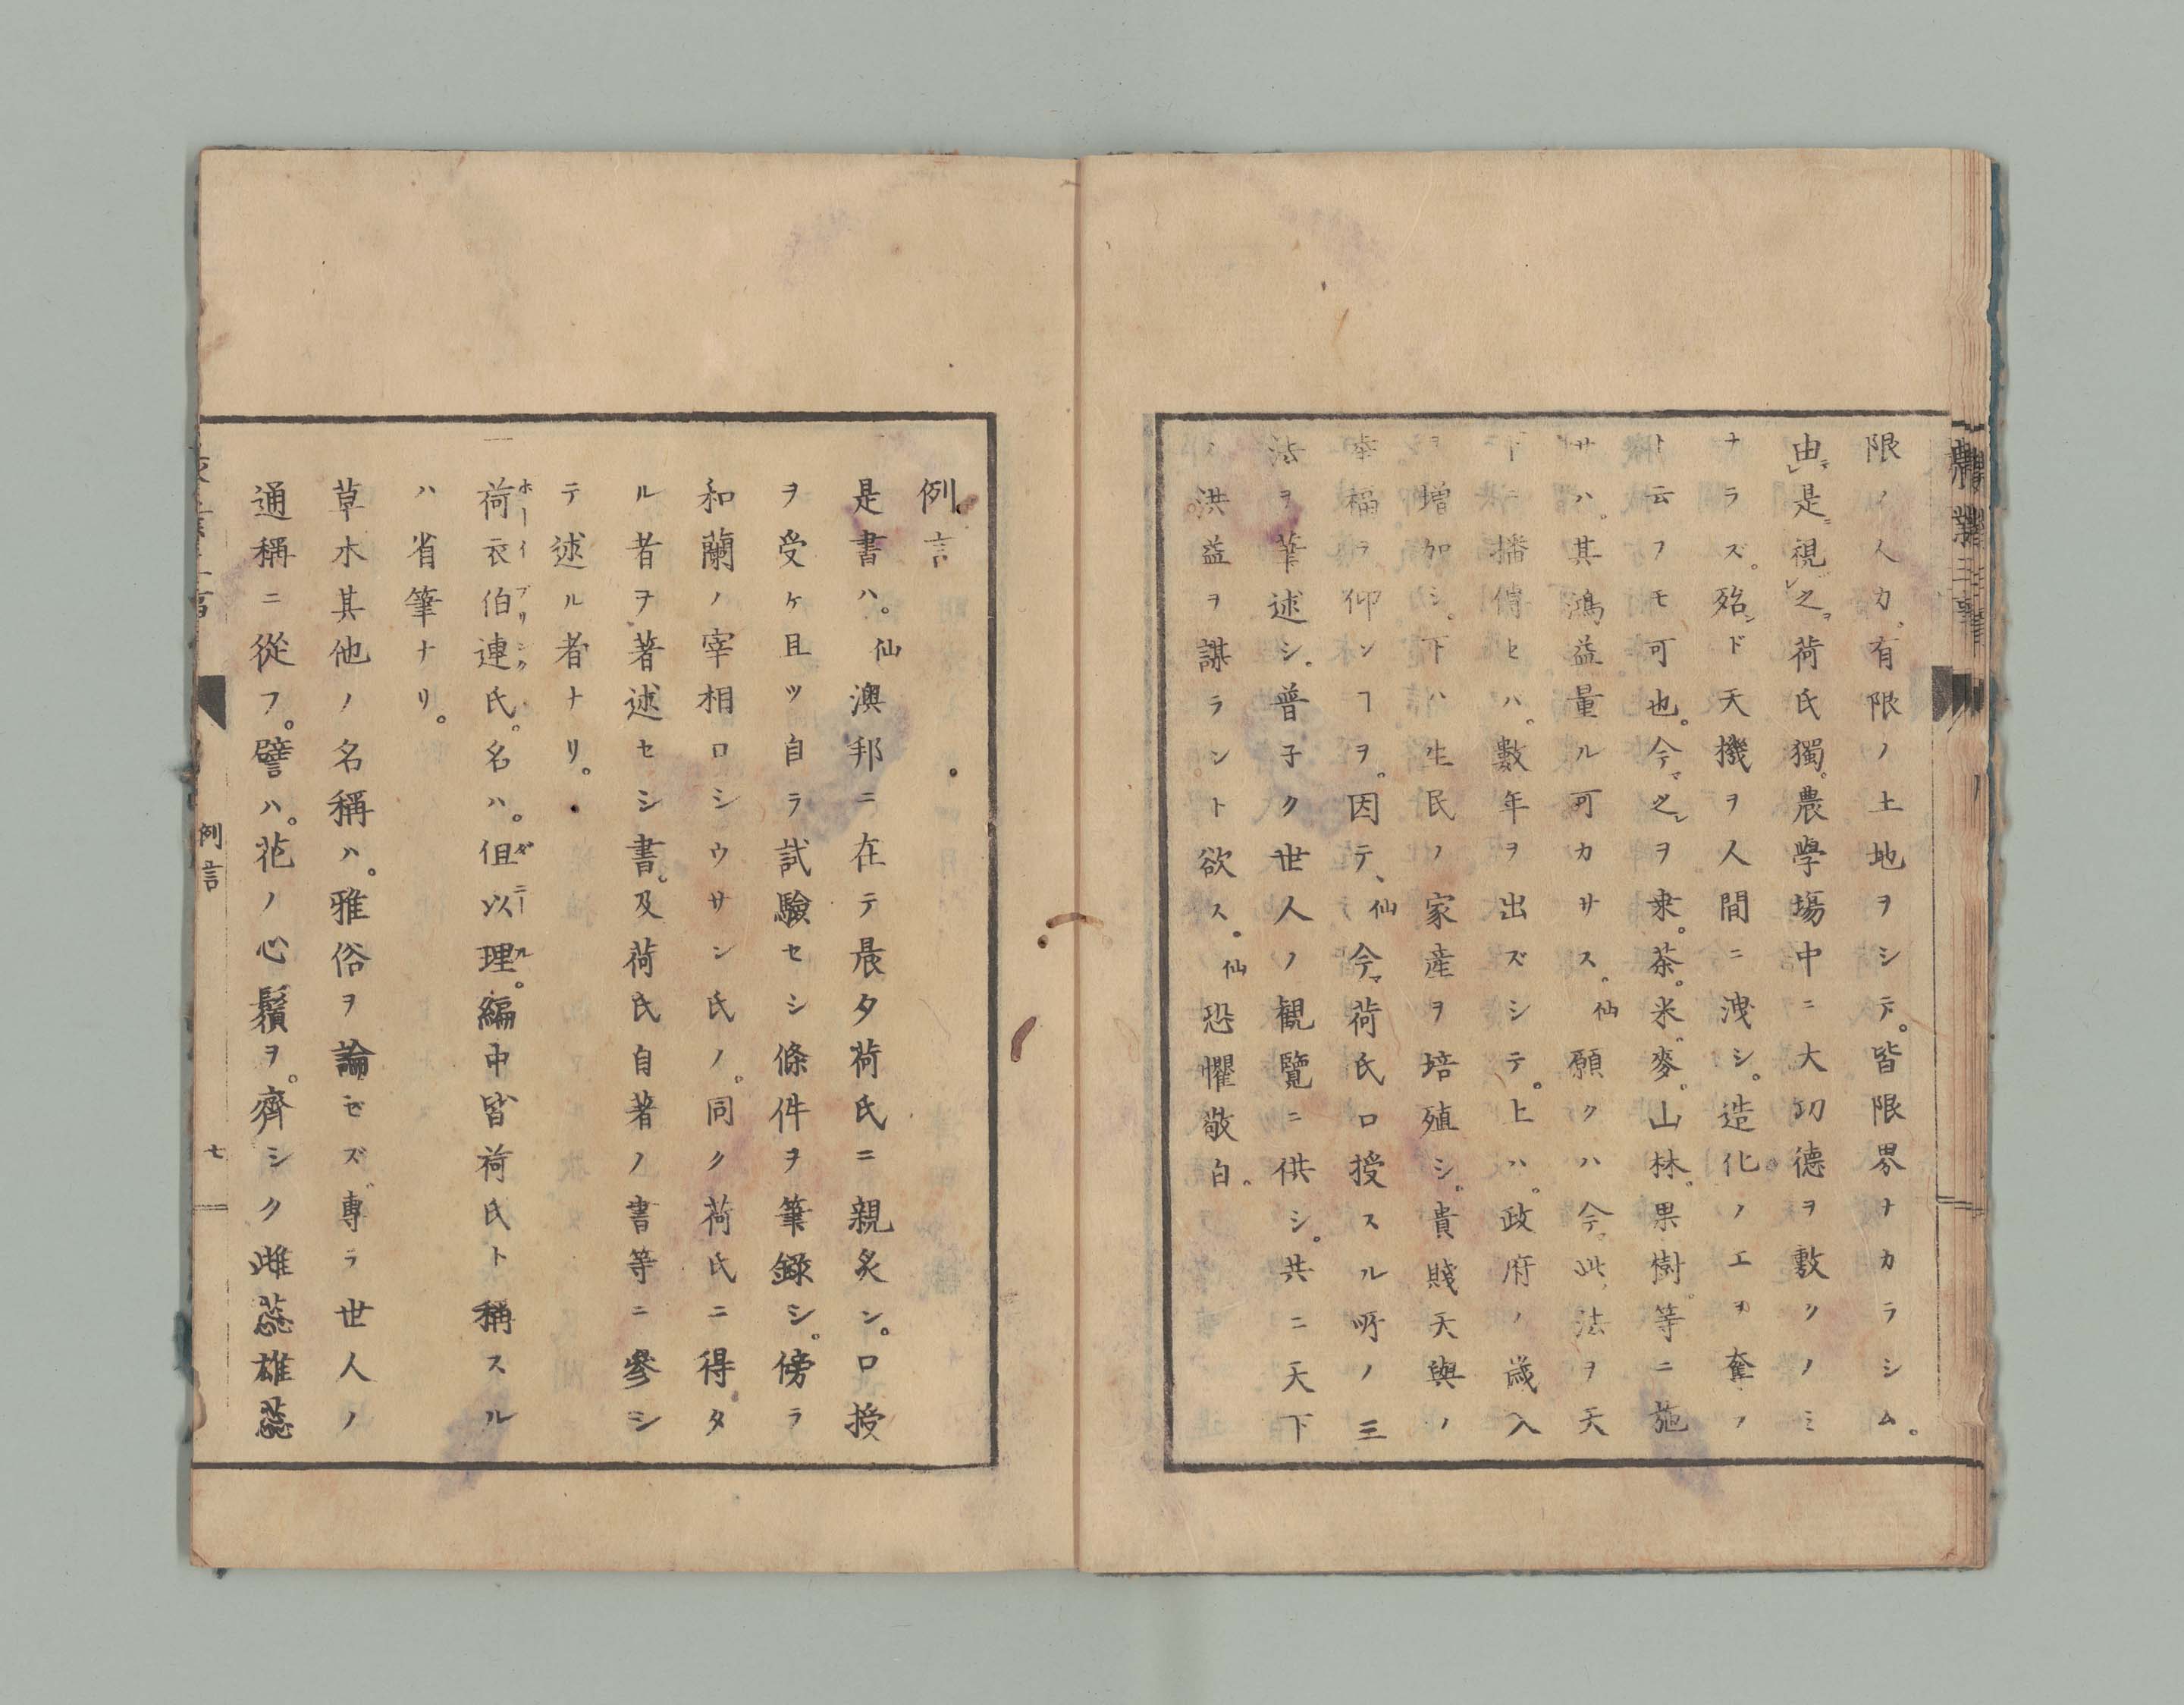 限ノ人力。有限ノ土地ヲシテ。皆限界ナカラシム。
由是視之。荷氏獨。農學塲中ニ大功德ヲ敷クノミ
ナラズ。殆ンド天機ヲ人間ニ洩シ。造化ノエヲ奪ノ
ト云フモ可也。今之ヲ桒。茶。米。麥。山林。果樹等ニ施
サハ。其鴻益量ル可カサス。仙願クハ今此法ヲ天
下ニ播傳セハ。數年ヲ出ズシテ。上ハ。政府ノ歳入
ヲ増加シ。下ハ生民ノ家産ヲ培殖シ。貴賤天與ノ
幸福ラ仰ンヿヲ。因テ、仙今荷氏口授スル所ノ三
法ヲ筆述シ。普子ク世人ノ観覽ニ供シ。共ニ天下
ノ洪益ヲ謀ラント欲ス。仙恐懼敬白。
農業三事
例言
是書ハ。仙澳邦ニ在テ晨夕荷氏ニ親炙シ。口授
ヲ受ケ且ツ自ラ試驗セシ條件ヲ筆錄シ。傍ラ
和蘭ノ宰相ロシウサン氏ノ。同ク荷氏ニ得タ
ル者ヲ著述セシ書。及荷氏自著ノ書等ニ參シ
テ述ル者ナリ。
一荷衣伯連氏。名ハ。但以理。編中皆荷氏ト稱スル
ホーイブリンク ダニール
ハ省筆ナリ。
草木其他ノ名稱ハ。雅俗ヲ論セズ專ラ世人ノ
通稱ニ從フ。譬ハ。花ノ心鬚ヲ。齊シク雌蕊雄蕊
例言
七